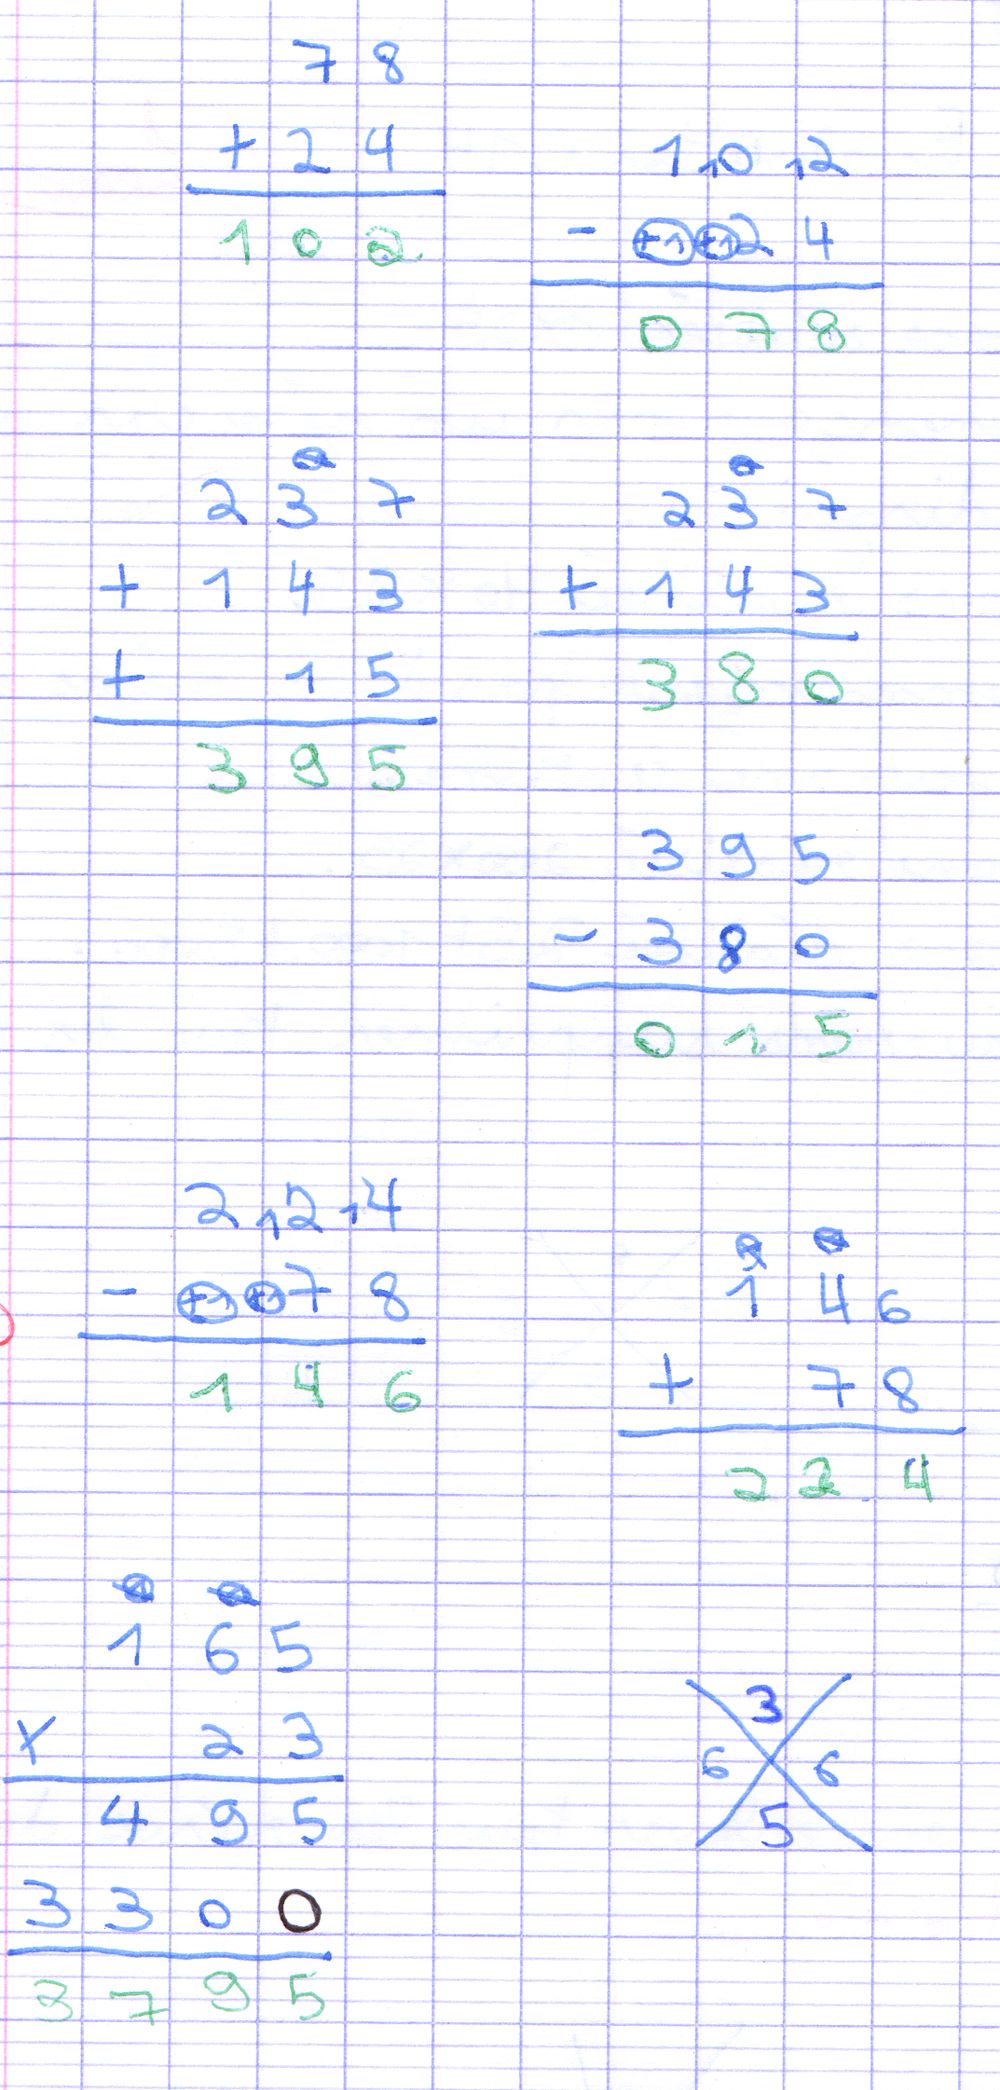 7 8
+ 2 4
1 0 2
1 ,0 ,2
- +1 +1 2 4
0 7 8
2 3 7
+ 1 4 3
+ 1 5
3 9 5
2 3 7
+ 1 4 3
3 8 0
3 9 5
- 3 8 0
0 1 5
2 ,2 ,4
- +1 +1 7 8
1 4 6
1 4 6
+ 7 8
2 2 4
1 6 5
x 2 3
4 9 5
3 3 0 0
3 7 9 5
3
6 6
5